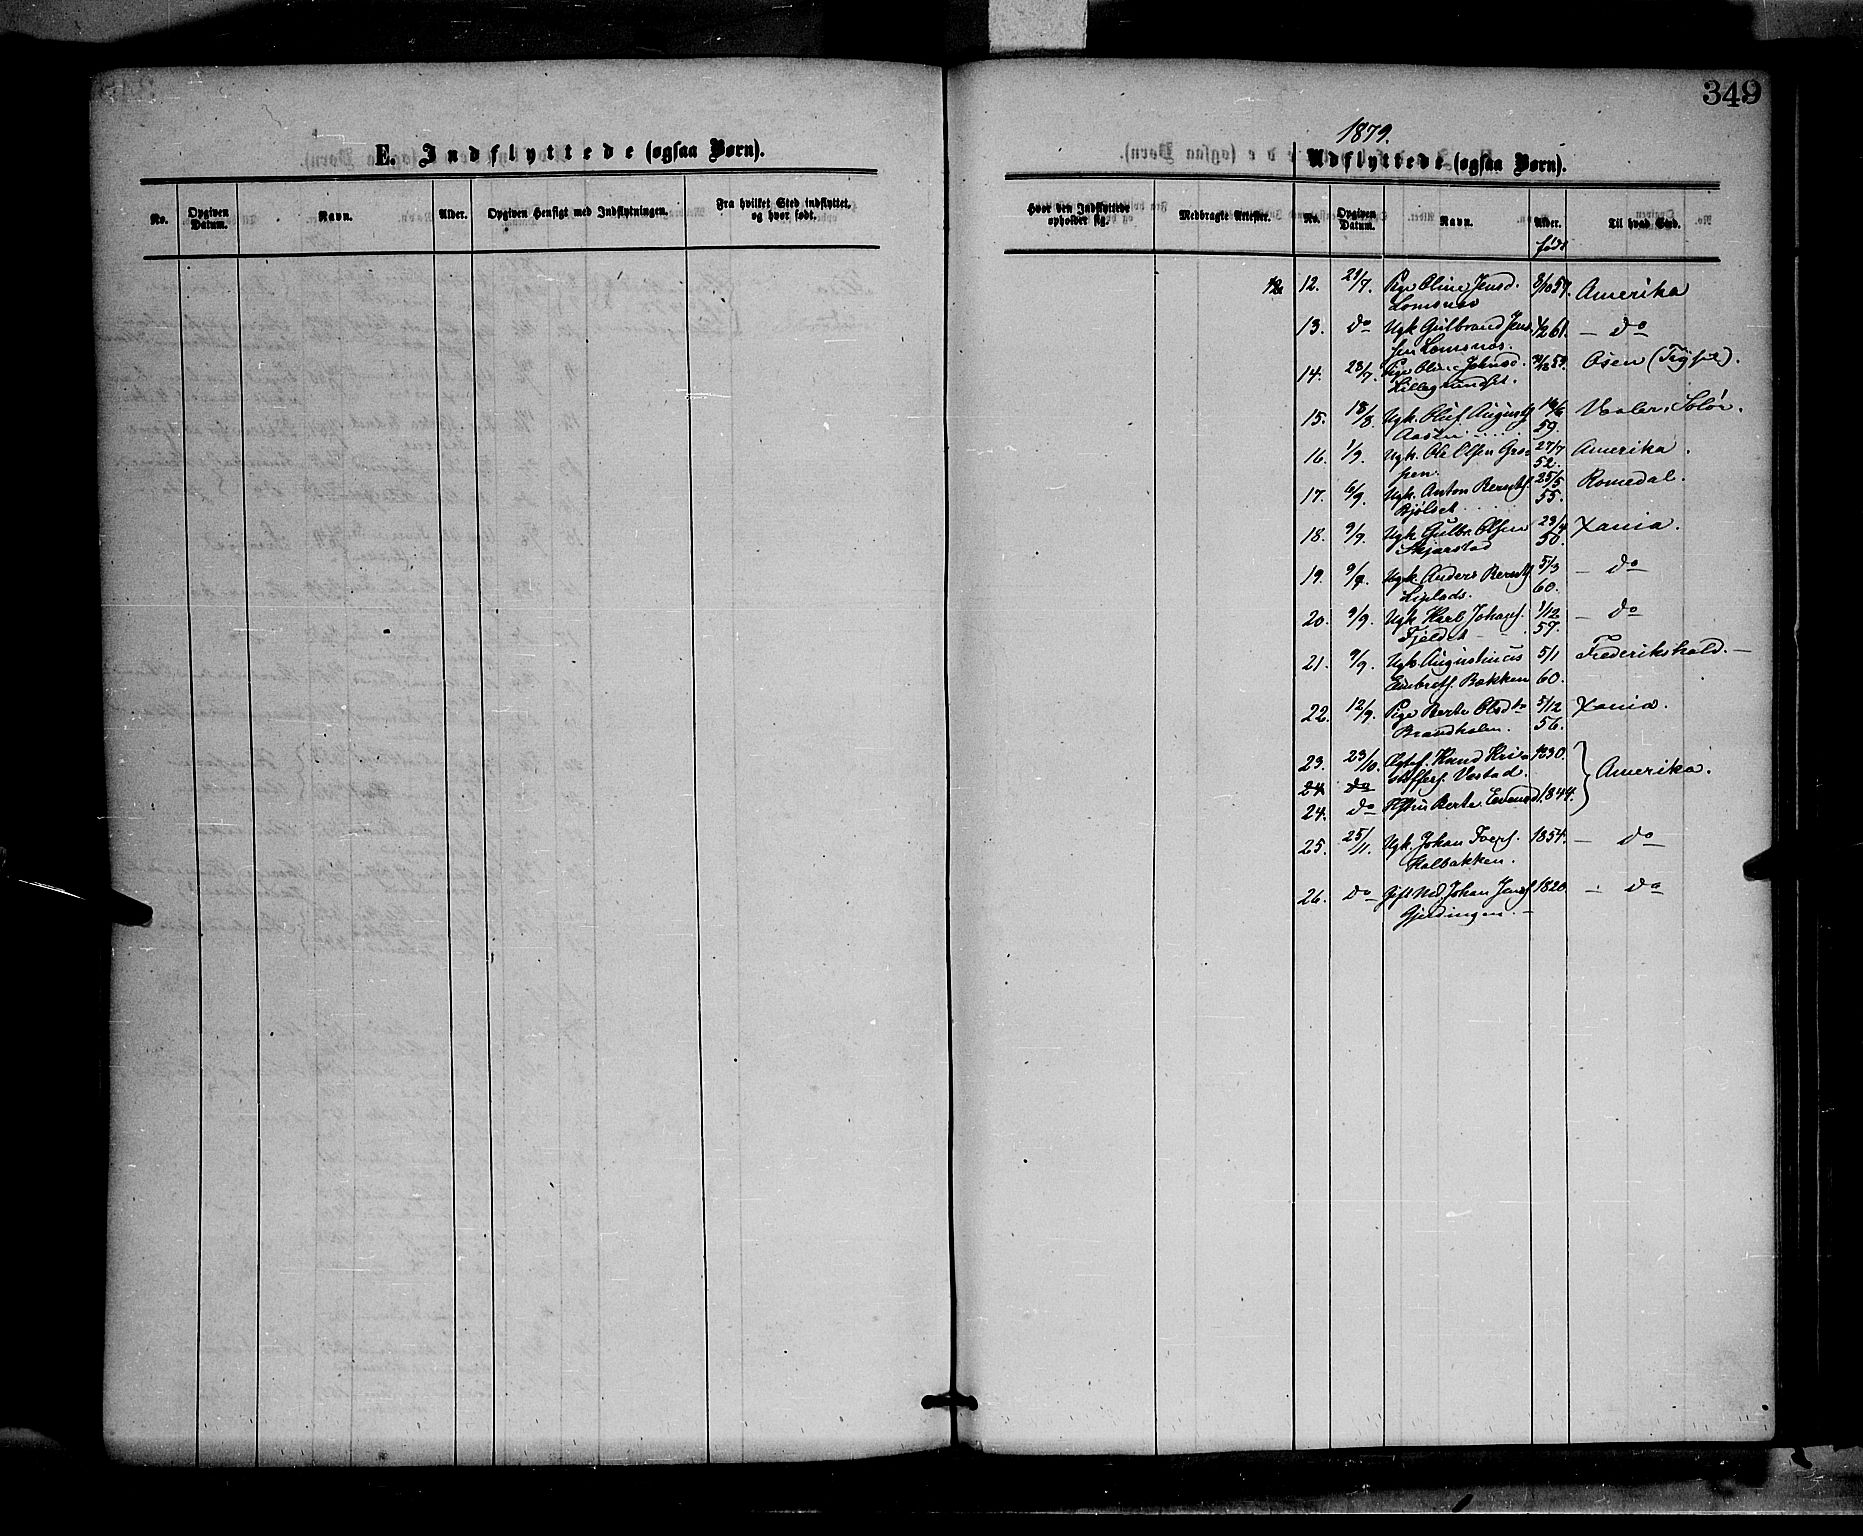 349
E. Indflyttede (ogsaa Børn).
No. Opgiven Datum. Navn. Alder. Opgiven Hensigt med Indflytningen. Fra hvilket Sted indflyttet, og hvor født.
1879.
Udflyttede (ogsaa Børn).
Hvor den Indflyttede opholder sig. Medbragte Attester. No. Opgiven Datum. Navn. Alder. Til hvad Sted.
født
12. 12. 21/7. Pige Oline Jensd. Amerika
Lomsnæs
13. do Ugk Gulbrand Jen 61. – do
sen Lomsnæs.
14. 23/7. Pige Oline Johnsd. Osen (Trysil).
Lillegrundset.
15. 18/8. Ugk. Oluf Augusts Vaaler, Solør.
59.
16. 1/9. Ugk. Ole Olsen 27/7 Amerika.
52.
17. 6/9. Ugk. Anton Bernts. 25/5 Romedal.
Bjölset 55.
18. 9/9. Ugk. Gulbr. Olsen 23/4 Xania.
Skjærstad 50.
19. 9/9. Ugk. Anders Bernts. 5/3 – do
60.
20. 9/9. Ugk. Karl Johans. 1/12 – do
Fjeldet 57.
21. 9/9. Ugk. Augustinus 5/1 Frederikshald. –
Embrets. Bækken 60.
22. 12/9. Pige Berte Olsdtr 5/12 Xania.
Brændholen. 56.
23. 23/10. Knud Kri- 1830. Amerika.
stoffers. Vestad.
24 do
24. do Hustru Berte Evensd. 1844.
25. 25/11. Ugk. Johan 1854. – do
Kalbakken.
26. do Gift Md. Johan Jens. 1820 – do
Gjeldingen. –